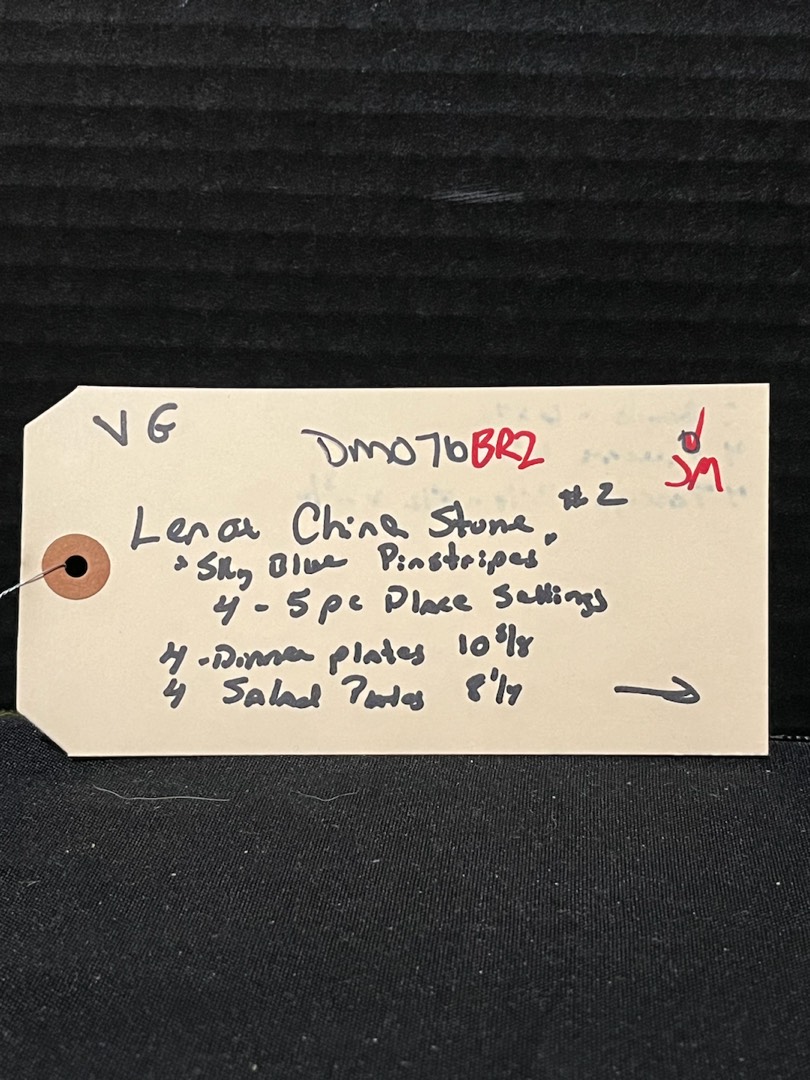 VG
DM076BR2
JM
Lenox China Stone #2
"Sky Blue Pinstripes"
4 - 5 pc Place Settings
4 - Dinner plates 10 5/8
4 Salad Plates 8 1/4 →